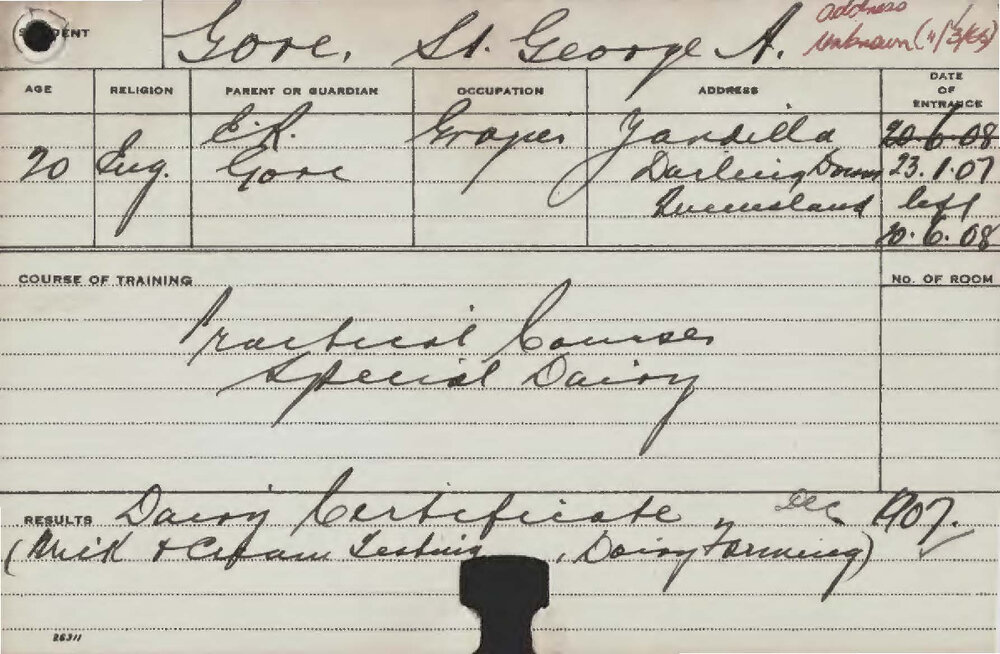 STUDENT Gore, St. George A. address
unknown (11/3/48)
AGE RELIGION PARENT OR GUARDIAN OCCUPATION ADDRESS DATE OF ENTRANCE
E.R. Grazier Yandilla 20.6.08
20 Eng. Gore Darling Downs 23.1.07
Queensland left
20.6.08
COURSE OF TRAINING No. OF ROOM
Practical Courses
Special Dairy
RESULTS Dairy Certificate, Dec 1907.
(Milk & Cream Testing, Dairy Farming)
26311